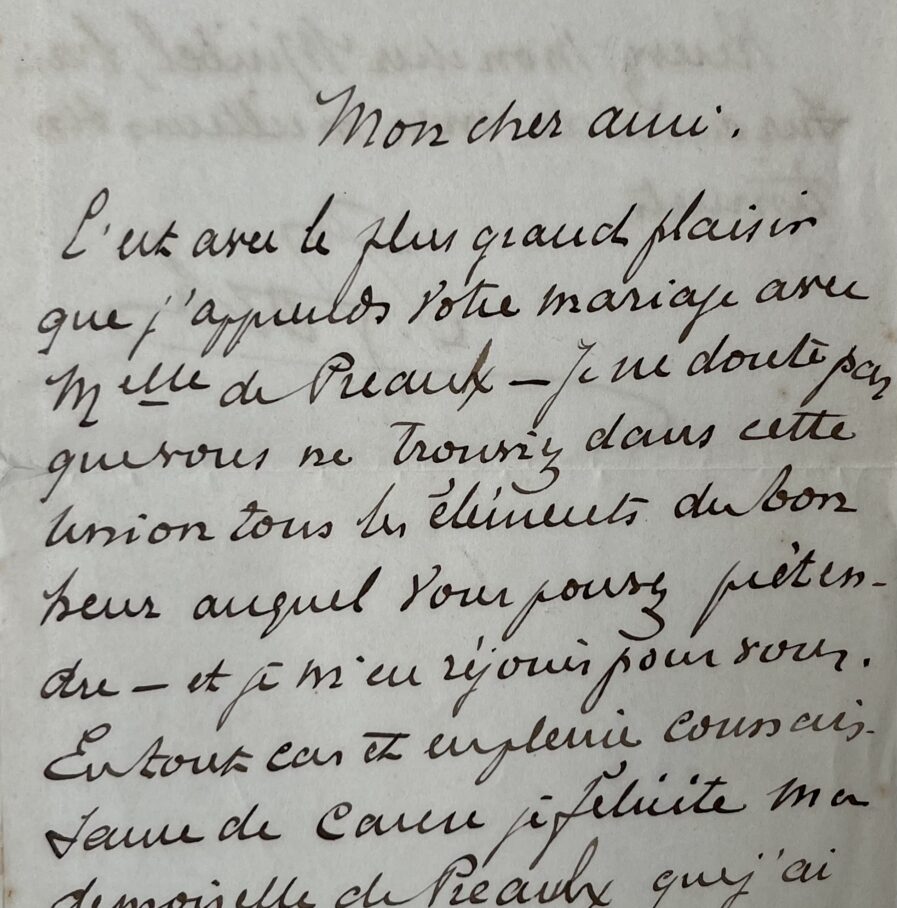 Mon cher ami.
C'est avec le plus grand plaisir
que j'apprends votre mariage avec
Melle de Préaulx – Je ne doute pas
que vous ne trouviez dans cette
union tous les éléments du bon
heur auquel vous pouvez préten-
dre – et je m'en réjouis pour vous.
En tout cas et en pleine connais-
sance de cause je félicite ma
demoiselle de Préaulx que j'ai